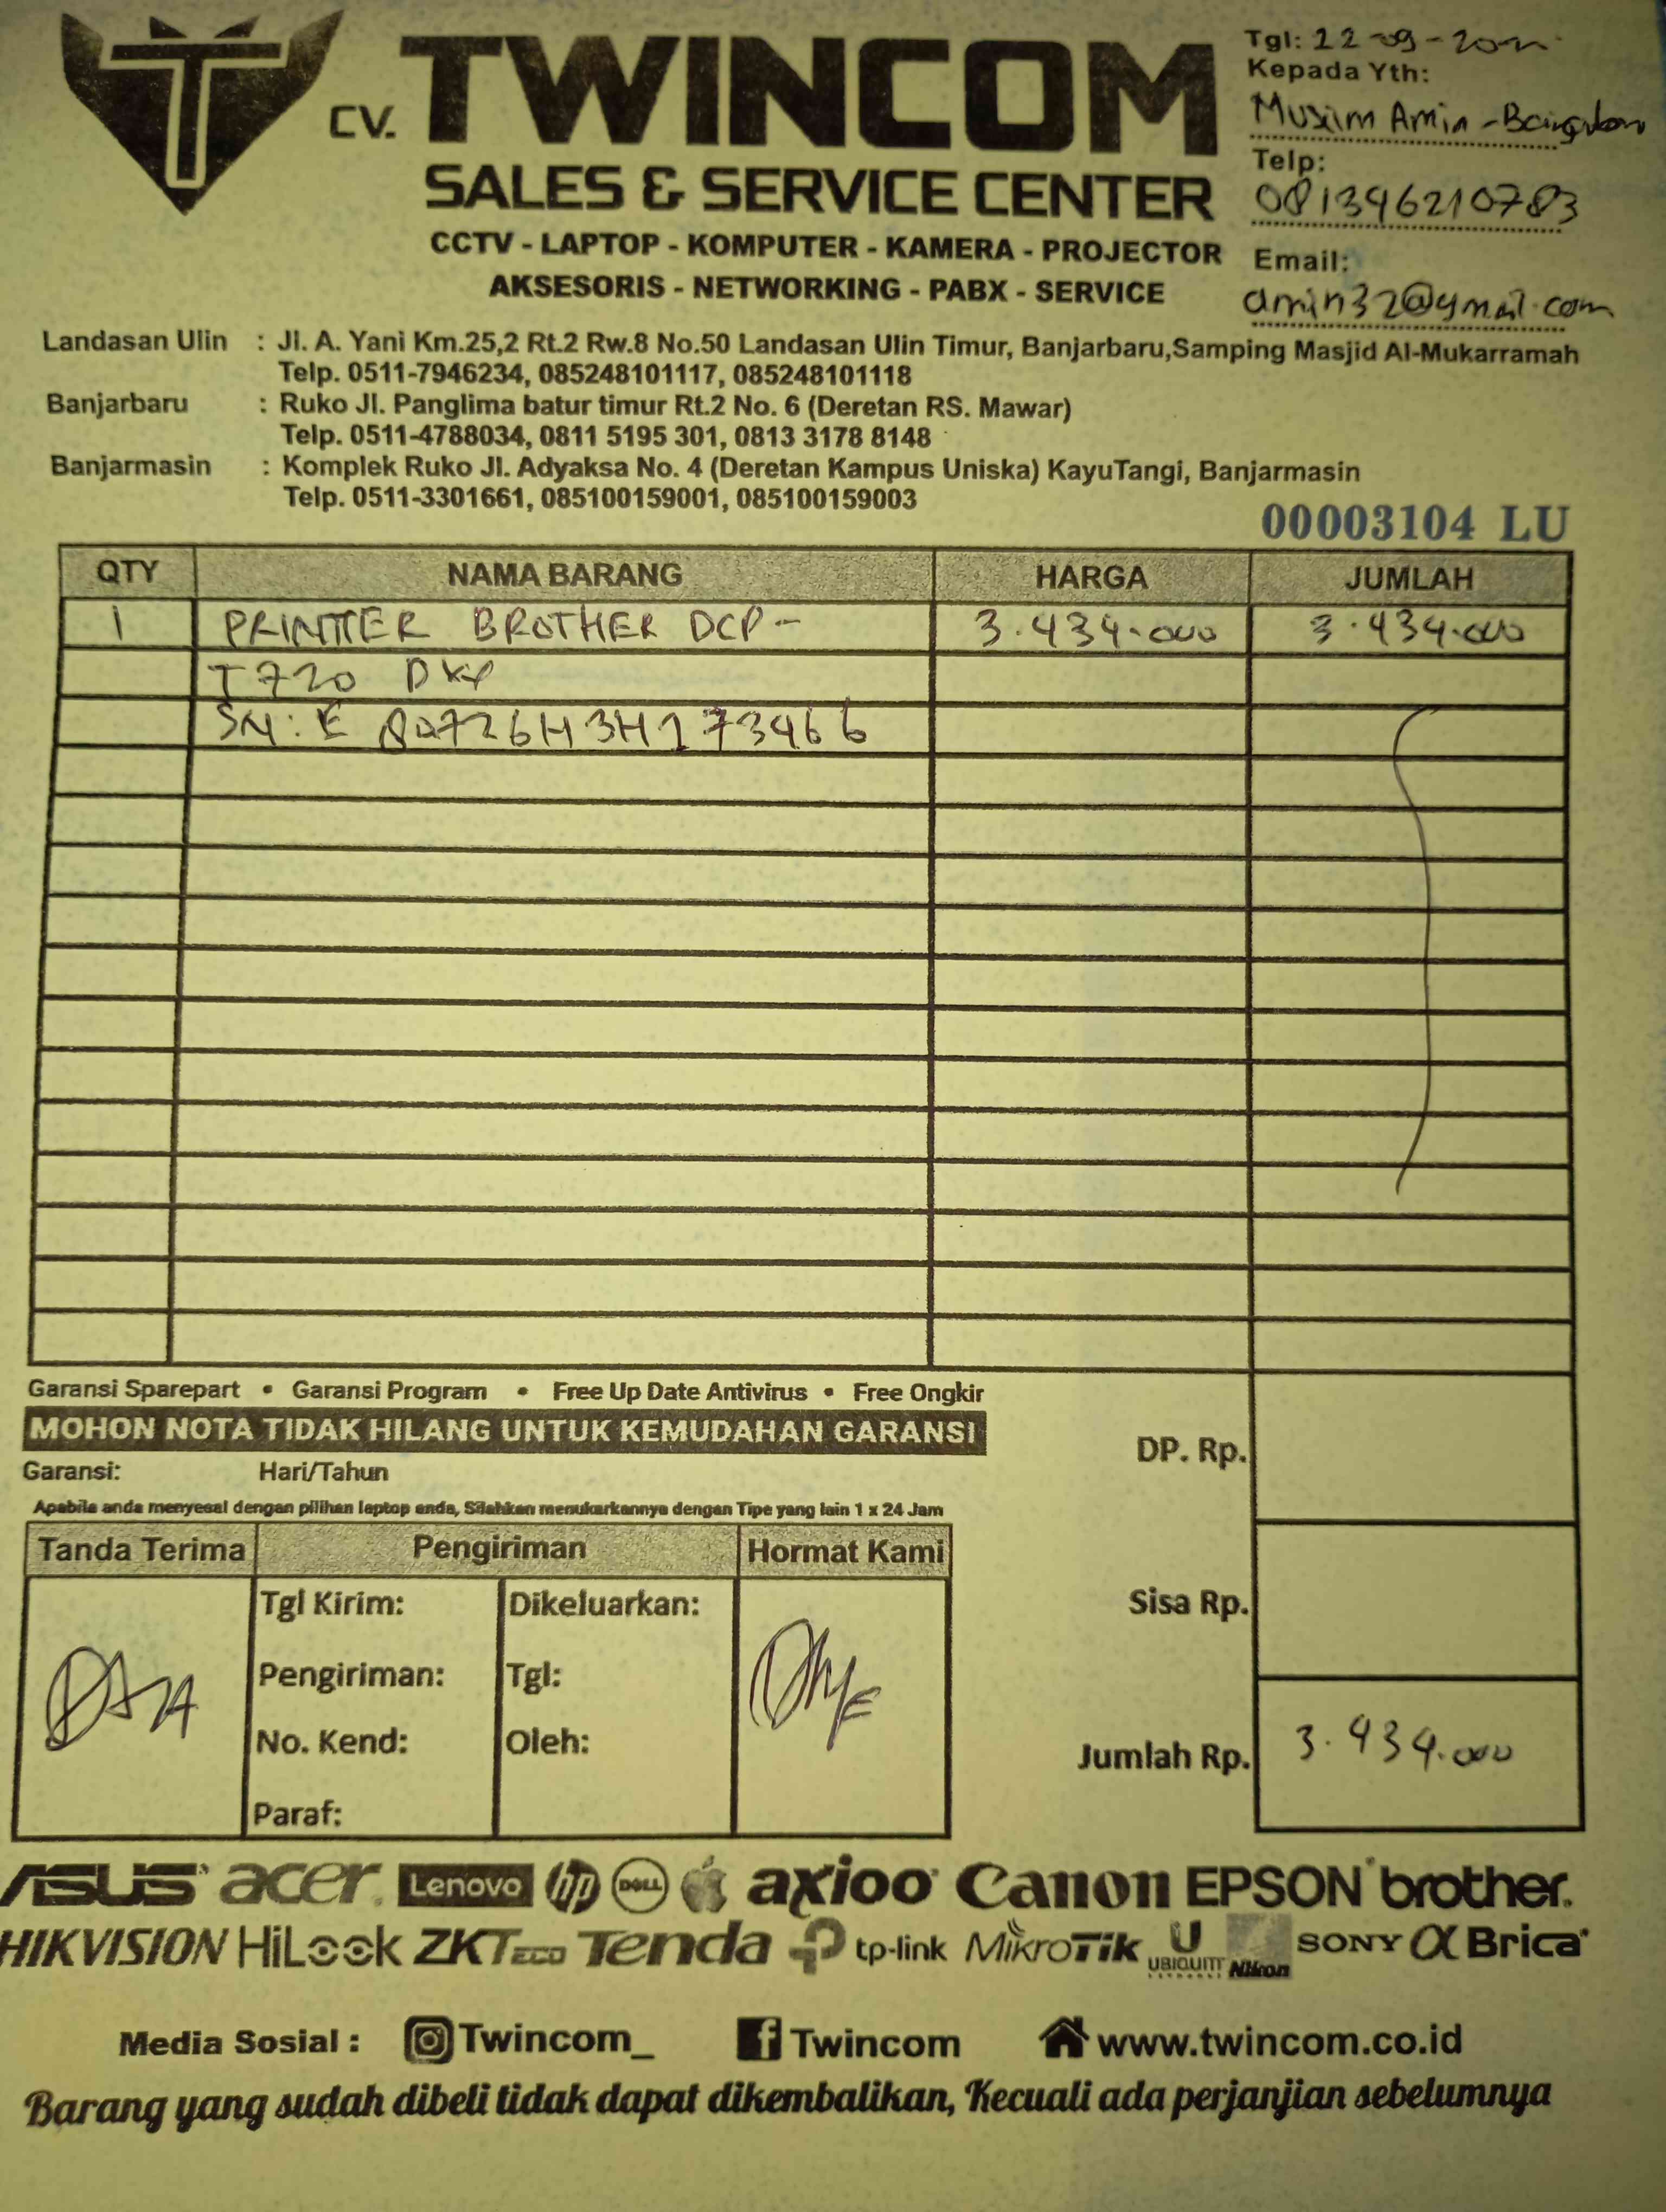 CV. TWINCOM
SALES & SERVICE CENTER
CCTV - LAPTOP - KOMPUTER - KAMERA - PROJECTOR
AKSESORIS - NETWORKING - PABX - SERVICE
Tgl: 22-09-
Kepada Yth:
Amin -
Telp:
081346210783
Email:
amin32@gmail.com
Landasan Ulin : Jl. A. Yani Km.25,2 Rt.2 Rw.8 No.50 Landasan Ulin Timur, Banjarbaru,Samping Masjid Al-Mukarramah
Telp. 0511-7946234, 085248101117, 085248101118
Banjarbaru : Ruko Jl. Panglima batur timur Rt.2 No. 6 (Deretan RS. Mawar)
Telp. 0511-4788034, 0811 5195 301, 0813 3178 8148
Banjarmasin : Komplek Ruko Jl. Adyaksa No. 4 (Deretan Kampus Uniska) KayuTangi, Banjarmasin
Telp. 0511-3301661, 085100159001, 085100159003
00003104 LU
QTY NAMA BARANG HARGA JUMLAH
1 PRINTER BROTHER DCP- 3.434.000 3.434.000
T720
SN: E
Garansi Sparepart • Garansi Program • Free Up Date Antivirus • Free Ongkir
MOHON NOTA TIDAK HILANG UNTUK KEMUDAHAN GARANSI
Garansi: Hari/Tahun
Apabila anda menyesal dengan pilihan laptop anda, Silahkan menukarkannya dengan Tipe yang lain 1 x 24 Jam
DP. Rp.
Sisa Rp.
Jumlah Rp. 3.434.000
Tanda Terima Pengiriman Hormat Kami
Tgl Kirim: Dikeluarkan:
Pengiriman: Tgl:
No. Kend: Oleh:
Paraf:
ASUS acer Lenovo hp DELL axioo Canon EPSON brother
HIKVISION HiLook ZKTeco Tenda tp-link MikroTik U UBIQUITI Nikon SONY α Brica
Media Sosial : Twincom_ f Twincom www.twincom.co.id
Barang yang sudah dibeli tidak dapat dikembalikan, Kecuali ada perjanjian sebelumnya